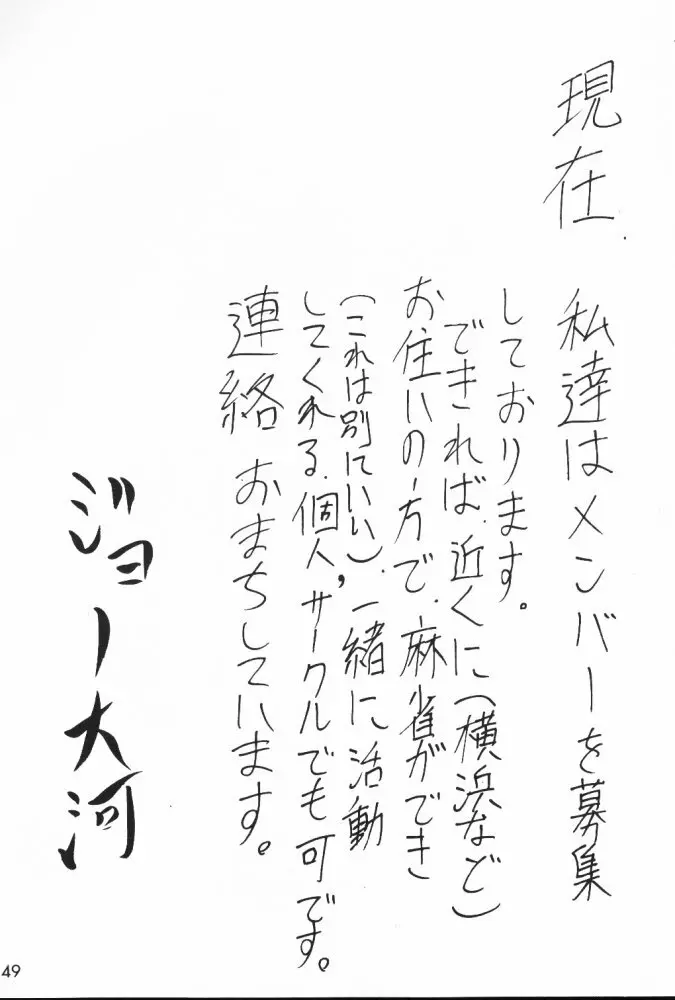 現在、私達はメンバーを募集
しております。
できれば、近くに（横浜など）
お住いの方で、麻雀ができ
（これは別にいい）、一緒に、活動
してくれる、個人、サークルでも可です。
連絡、おまちしています。
ジョー大河
49